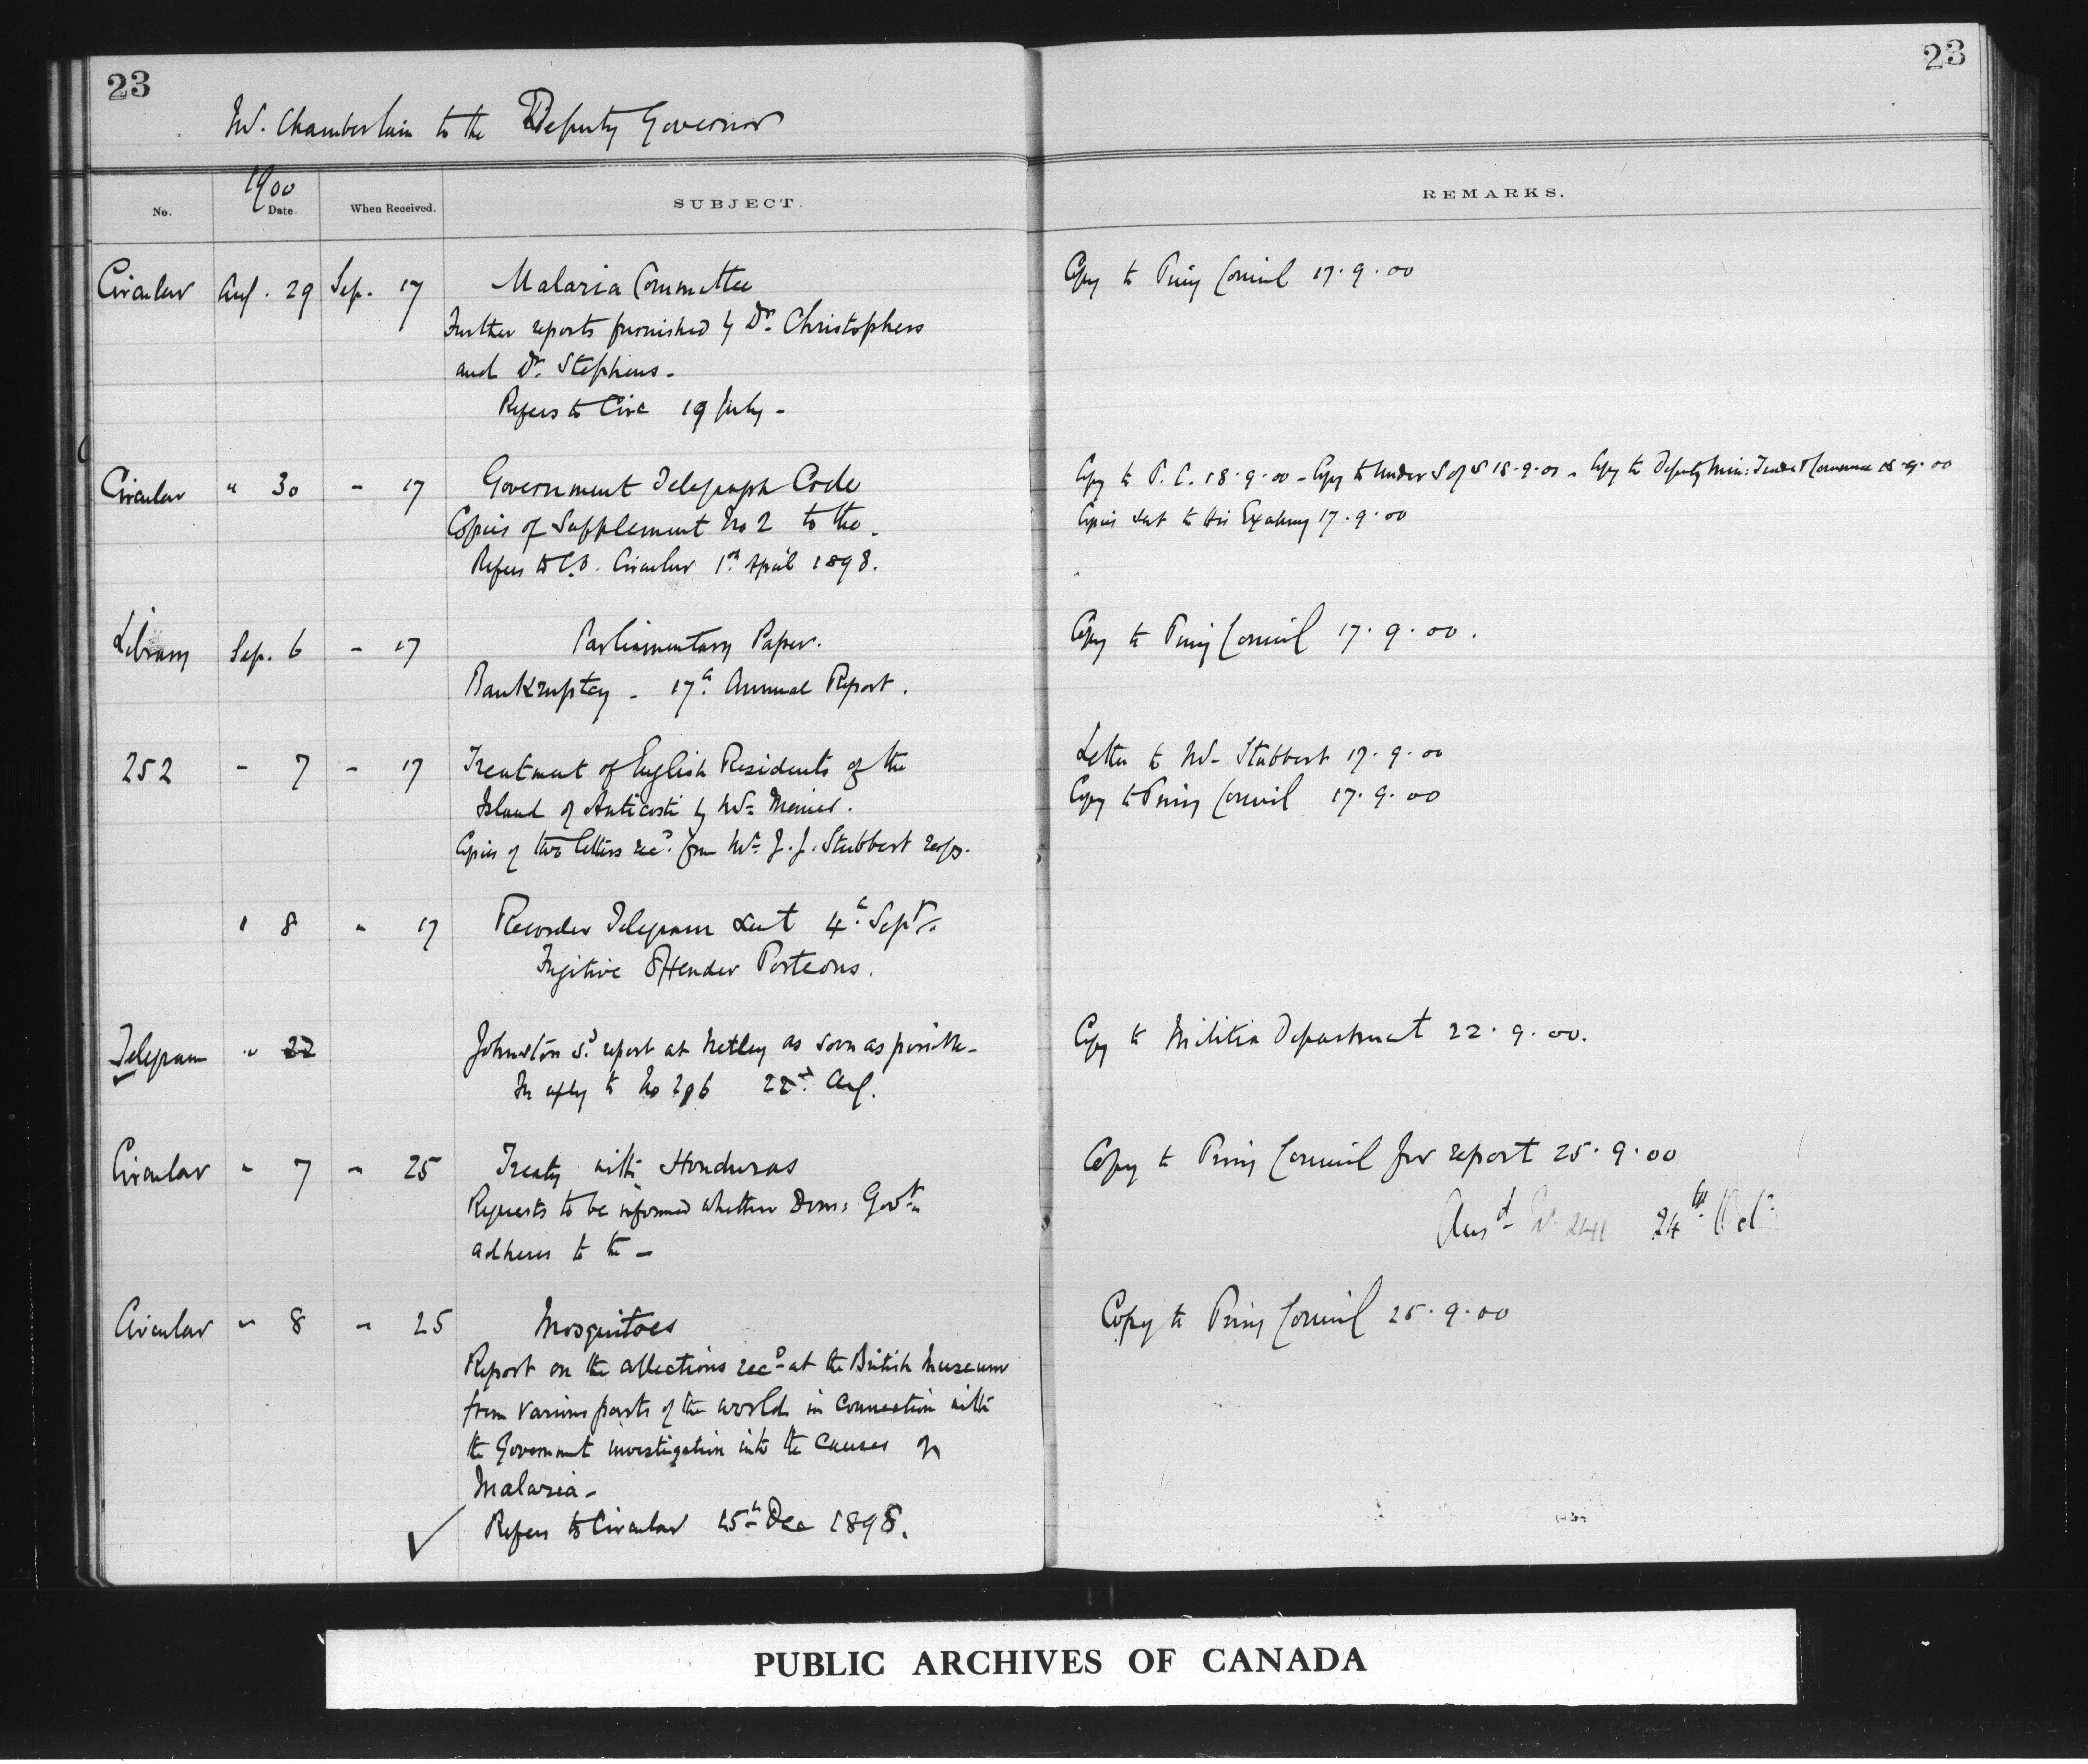 23
23
Mr. Chamberlain to the Deputy Governor
1900
No.
Date.
When Received.
SUBJECT.
REMARKS.
Circular Aug. 29 Sep. 17 Malaria Committee
Copy to Privy Council 17.9.00
Further reports furnished by Dr. Christophers
and Dr. Stephens -
Refers to Circ 19 July -
Circular " 30 - 17 Government Telegraph Code
Copy to P.C. 18.9.00 - Copy to Under S of S 18.9.00 - Copy to Deputy Min: Trade & Commerce 18.9.00
Copies of Supplement No 2 to the.
Copies sent to His Excellency 17.9.00
Refers to C.O. Circular 1st April 1898.
Library Sep. 6 - 17 Parliamentary Paper.
Copy to Privy Council 17.9.00.
Bankruptcy - 17th Annual Report.
252 - 7 - 17 Treatment of English Residents of the
Letter to Mr- Stubbert 17.9.00
Island of Anticosti by Mr. Menier.
Copy to Privy Council 17.9.00
Copies of two letters recd. from Mr. J. J. Stubbert resp.
" 8 " 17 Recorder Telegram sent 4th Sept.
Fugitive Offender Porteous.
Telegram " 22 Johnston sd. report at Netley as soon as possible -
Copy to Militia Department 22.9.00.
In reply to No 22nd. Aug.
Circular " 7 - 25 Treaty with Honduras
Copy to Privy Council for report 25.9.00
Requests to be informed whether Dom: Govt.
Ansd. No. 241 24th Oct.
adheres to the -
Circular " 8 - 25 Mosquitoes
Copy to Privy Council 25.9.00
Report on the collections recd. at the British Museum
from various parts of the world in connection with
the Government investigation into the causes of
Malaria -
Refers to Circular 15th Dec 1898.
PUBLIC ARCHIVES OF CANADA